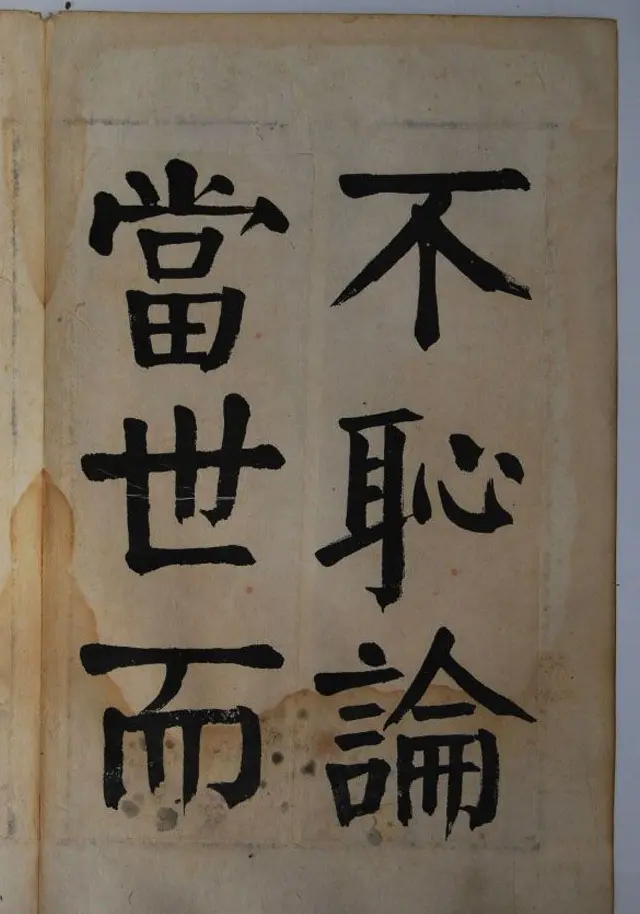 不恥論
當世而